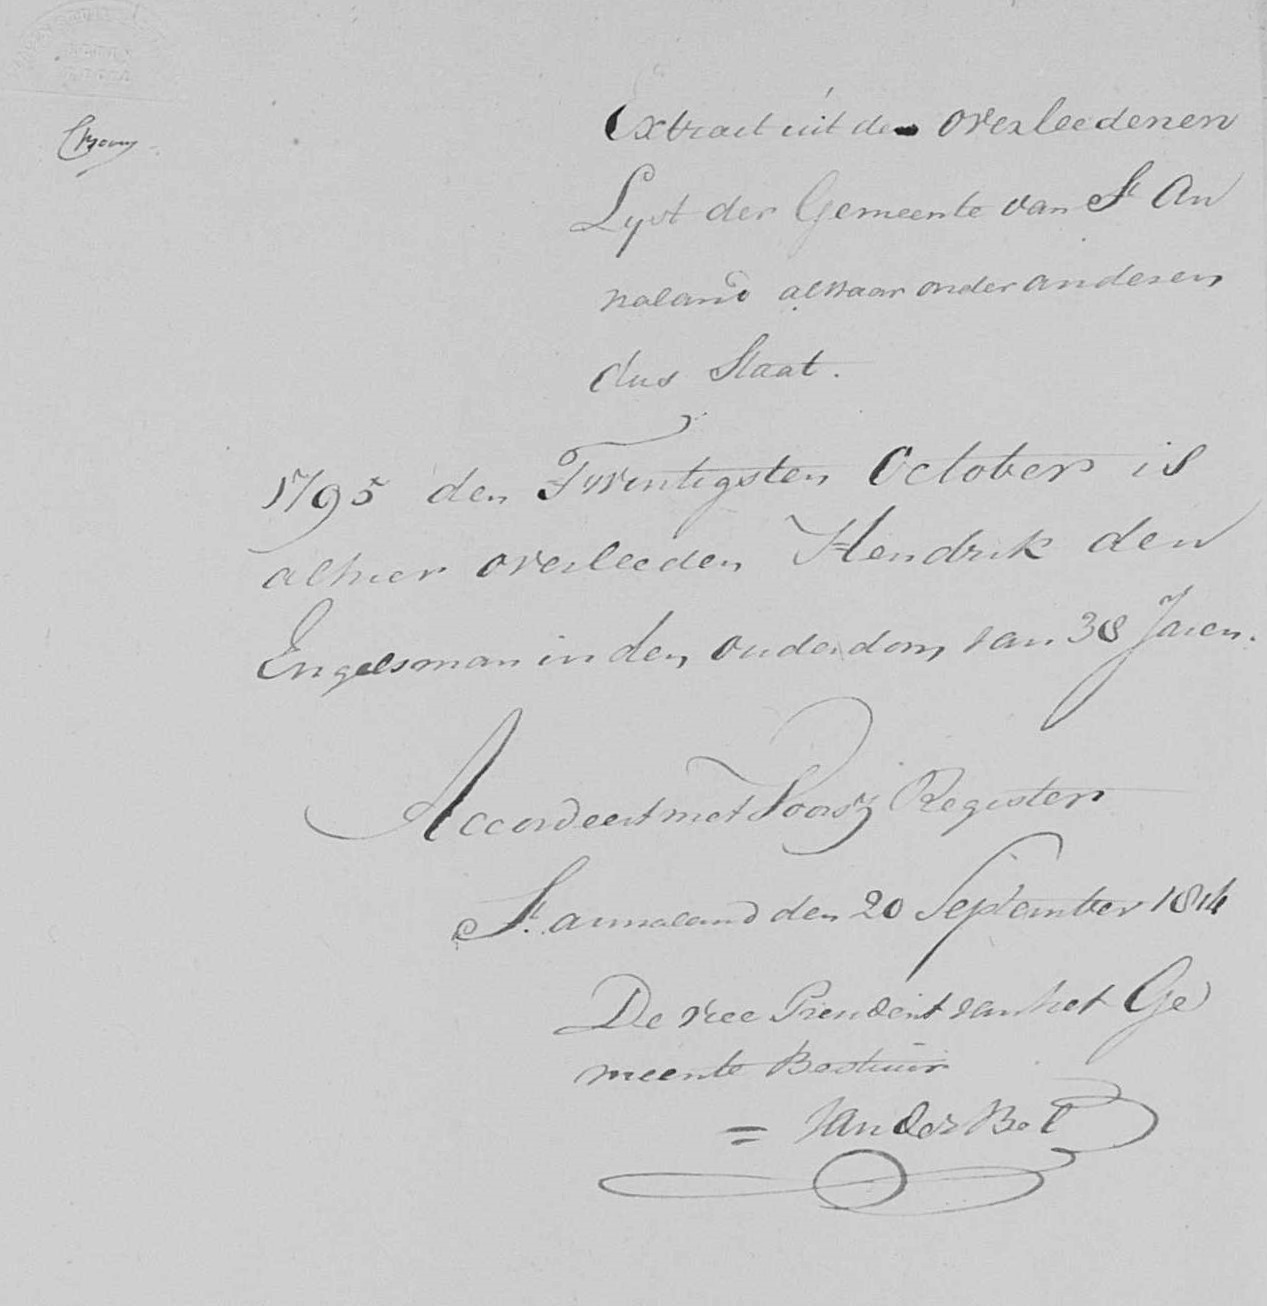 Extract uit de overleedenen
Lyst der Gemeente van St An
naland alwaar onder anderen
dus Staat.
1795 den Twentigsten October is
alhier overleeden Hendrik den
Engelsman in den ouderdom van 38 Jaren.
Accordeert met Voorsz Register
St. annaland den 20 September 1814
De vice President van het Ge
meente Bestuur
= Van der Bol